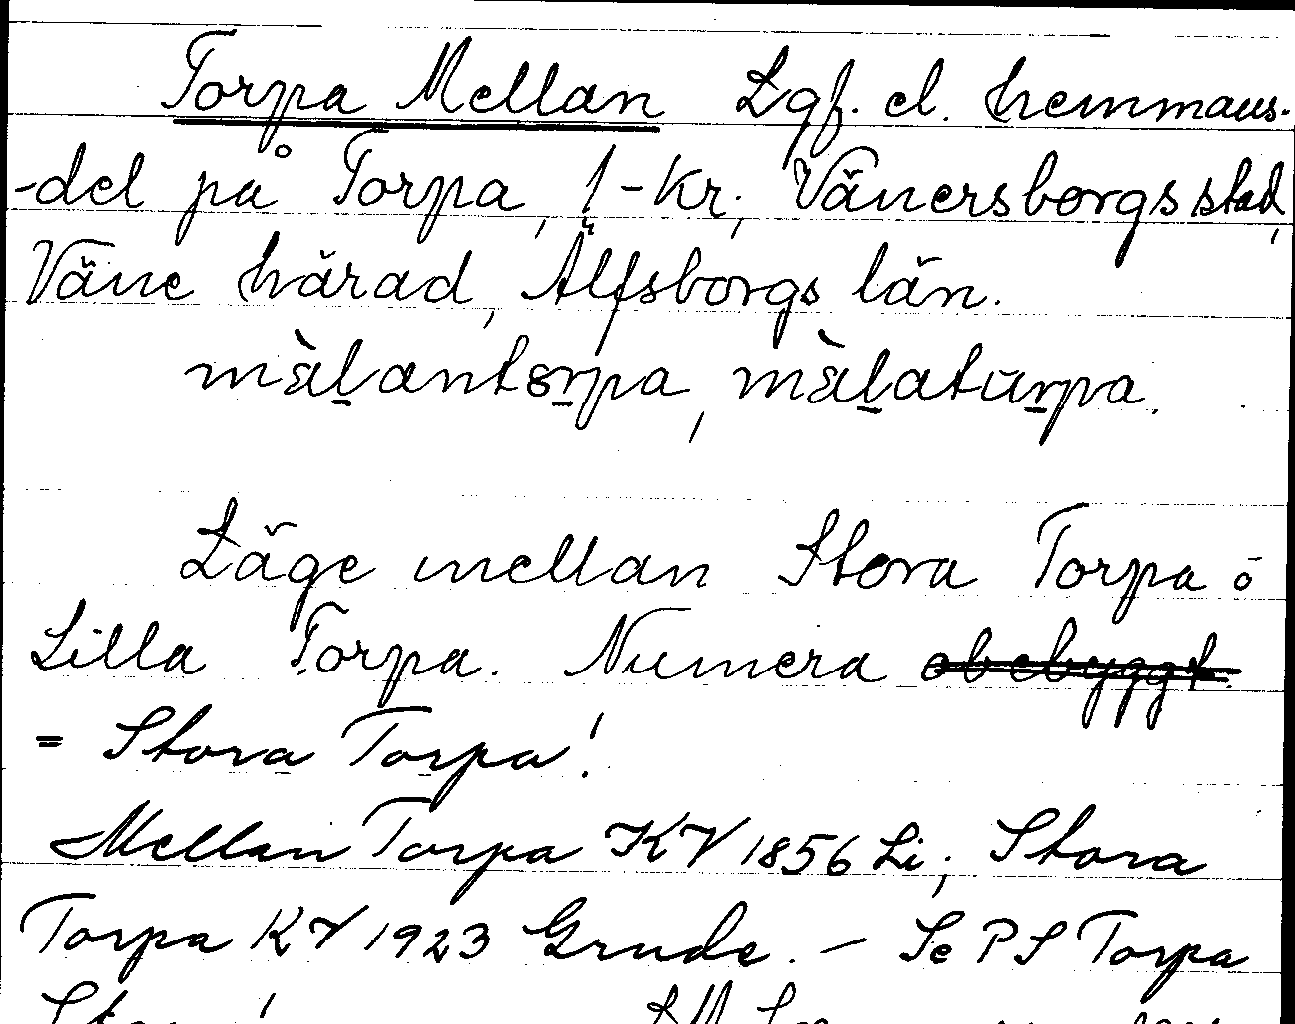 Torpa Mellan Lgf. el. hemmans-
-del på Torpa, 1-Kr; Vänersborgs stad,
Väne härad, Älfsborgs län.
màḻantɵṟpa, màḻatuṟpa.
Läge mellan Stora Torpa o
Lilla Torpa. Numera obebyggt.
= Stora Torpa!
Mellan Torpa KV 1856 Li; Stora
Torpa KV 1923 Grude. — Se PS Torpa